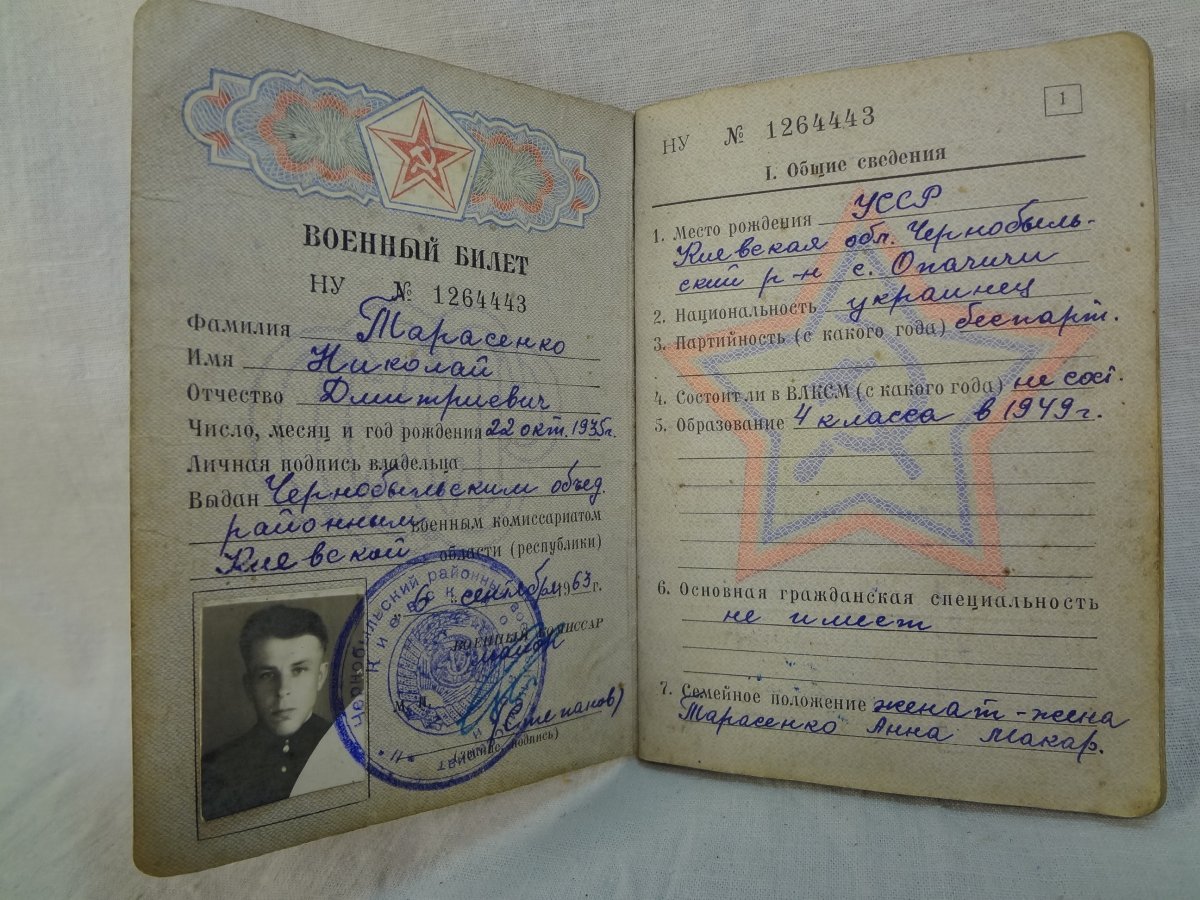 ВОЕННЫЙ БИЛЕТ
НУ № 1264443
Фамилия Тарасенко
Имя Николай
Отчество Дмитриевич
Число, месяц и год рождения 22 окт. 1935г.
Личная подпись владельца
Выдан Чернобыльским объед.
районным военным комиссариатом
Киевской области (республики)
"6" сентября 1963 г.
ВОЕННЫЙ КОМИССАР
майор
М. П.
(Степанов)
(звание, подпись)
НУ № 1264443
1
I. Общие сведения
1. Место рождения УССР
Киевская обл. Чернобыль-
ский р-н с. Опачичи
2. Национальность украинец
3. Партийность (с какого года) беспарт.
4. Состоит ли в ВЛКСМ (с какого года) не сост.
5. Образование 4 класса в 1949 г.
6. Основная гражданская специальность
не имеет
7. Семейное положение женат - жена
Тарасенко Анна Макар.